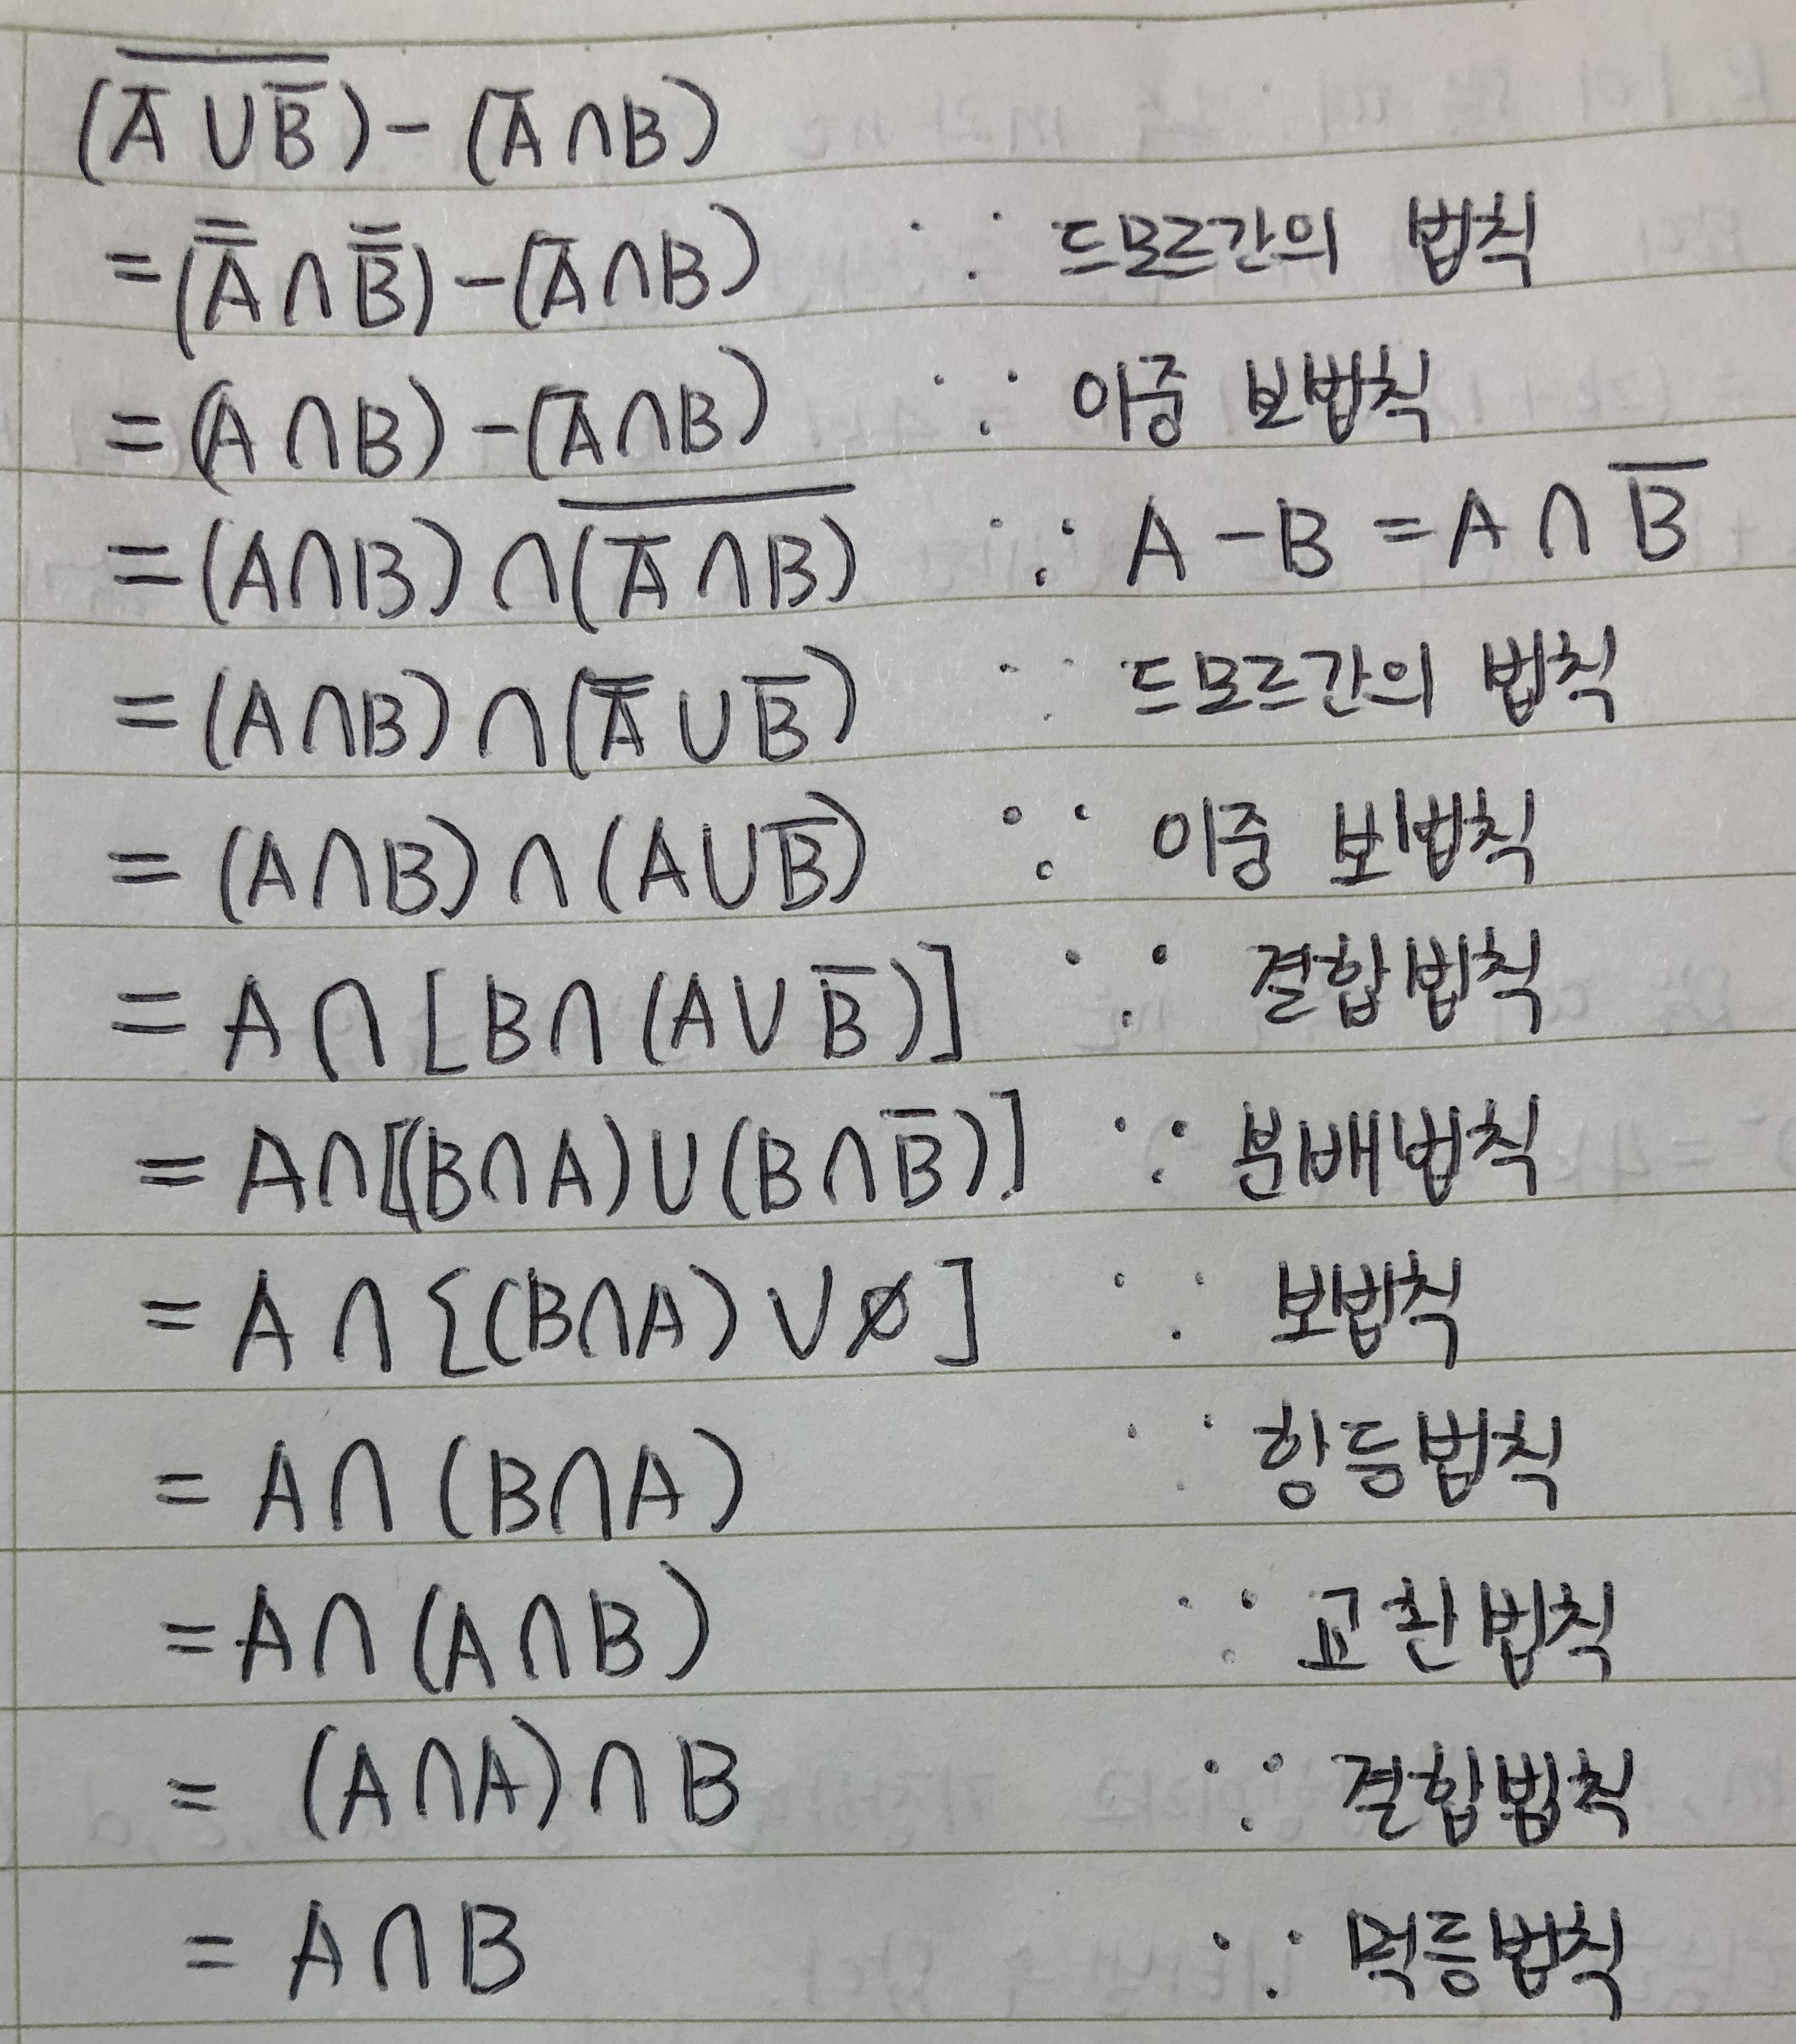 (A̅ ∪ B̅)‾ - (A̅ ∩ B)
= (A̿ ∩ B̿) - (A̅ ∩ B) ∵ 드모르간의 법칙
= (A ∩ B) - (A̅ ∩ B) ∵ 이중 보법칙
= (A ∩ B) ∩ (A̅ ∩ B)‾ ∵ A - B = A ∩ B̅
= (A ∩ B) ∩ (A̿ ∪ B̅) ∵ 드모르간의 법칙
= (A ∩ B) ∩ (A ∪ B̅) ∵ 이중 보법칙
= A ∩ [B ∩ (A ∪ B̅)] ∵ 결합법칙
= A ∩ [(B ∩ A) ∪ (B ∩ B̅)] ∵ 분배법칙
= A ∩ {(B ∩ A) ∪ ∅] ∵ 보법칙
= A ∩ (B ∩ A) ∵ 항등법칙
= A ∩ (A ∩ B) ∵ 교환법칙
= (A ∩ A) ∩ B ∵ 결합법칙
= A ∩ B ∵ 멱등법칙